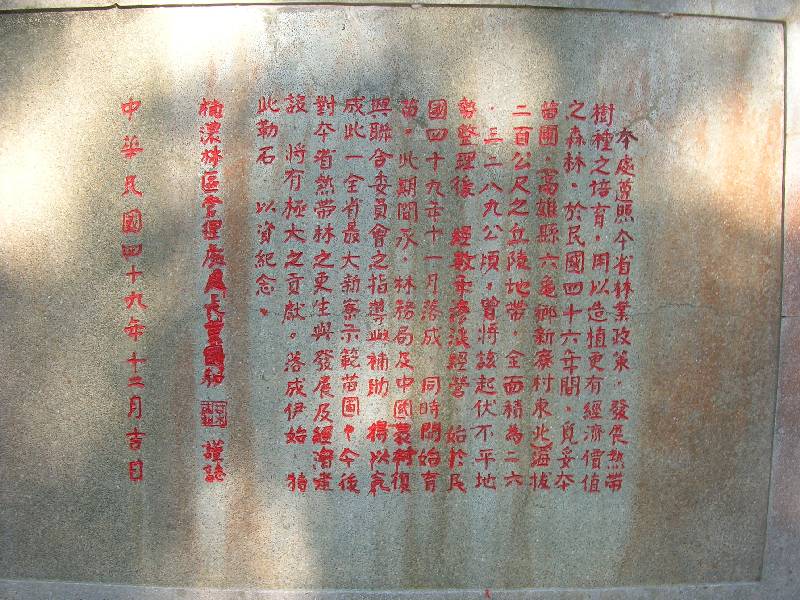 本處遵照本省林業政策，發展熱帶
樹種之培育，用以造植更有經濟價值
之森林。於民國四十六年間，覓妥本
苗圃，高雄縣六龜鄉新寮村東北海拔
二百公尺之丘陵地帶，全面積為二六
．三二八九公頃，曾將該起伏不平地
勢整理後 經數年慘淡經營 始於民
國四十九年十一月落成 同時開始育
苗。此期間承，林務局及中國農村復
興聯合委員會之指導與補助 得以完
成此一全省最大新寮示範苗圃，今後
對本省熱帶林之更生與發展及經濟建
設 將有極大之貢獻。落成伊始 特
此勒石 以資紀念。
楠濃林區管理處處長 國和 謹誌
中華民國四十九年十二月吉日